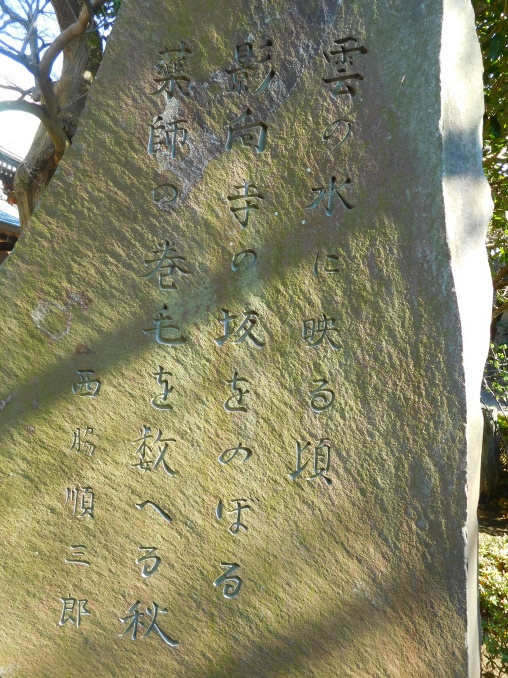 雲の水に映る頃
影向寺の坂をのぼる
薬師の巻毛を数へる秋
西脇順三郎